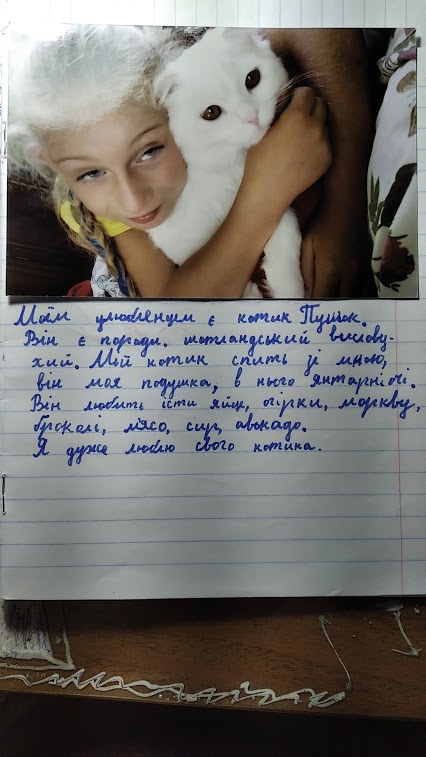 Моїм улюбленцем є котик Пушок.
Він є породи. шотландський вислову-
хий. Мій котик спить зі мною,
він моя подушка, в нього янтарні очі.
Він любить їсти яйце, огірки, моркву,
броколі, м'ясо, сир, авокадо.
Я дуже люблю свого котика.